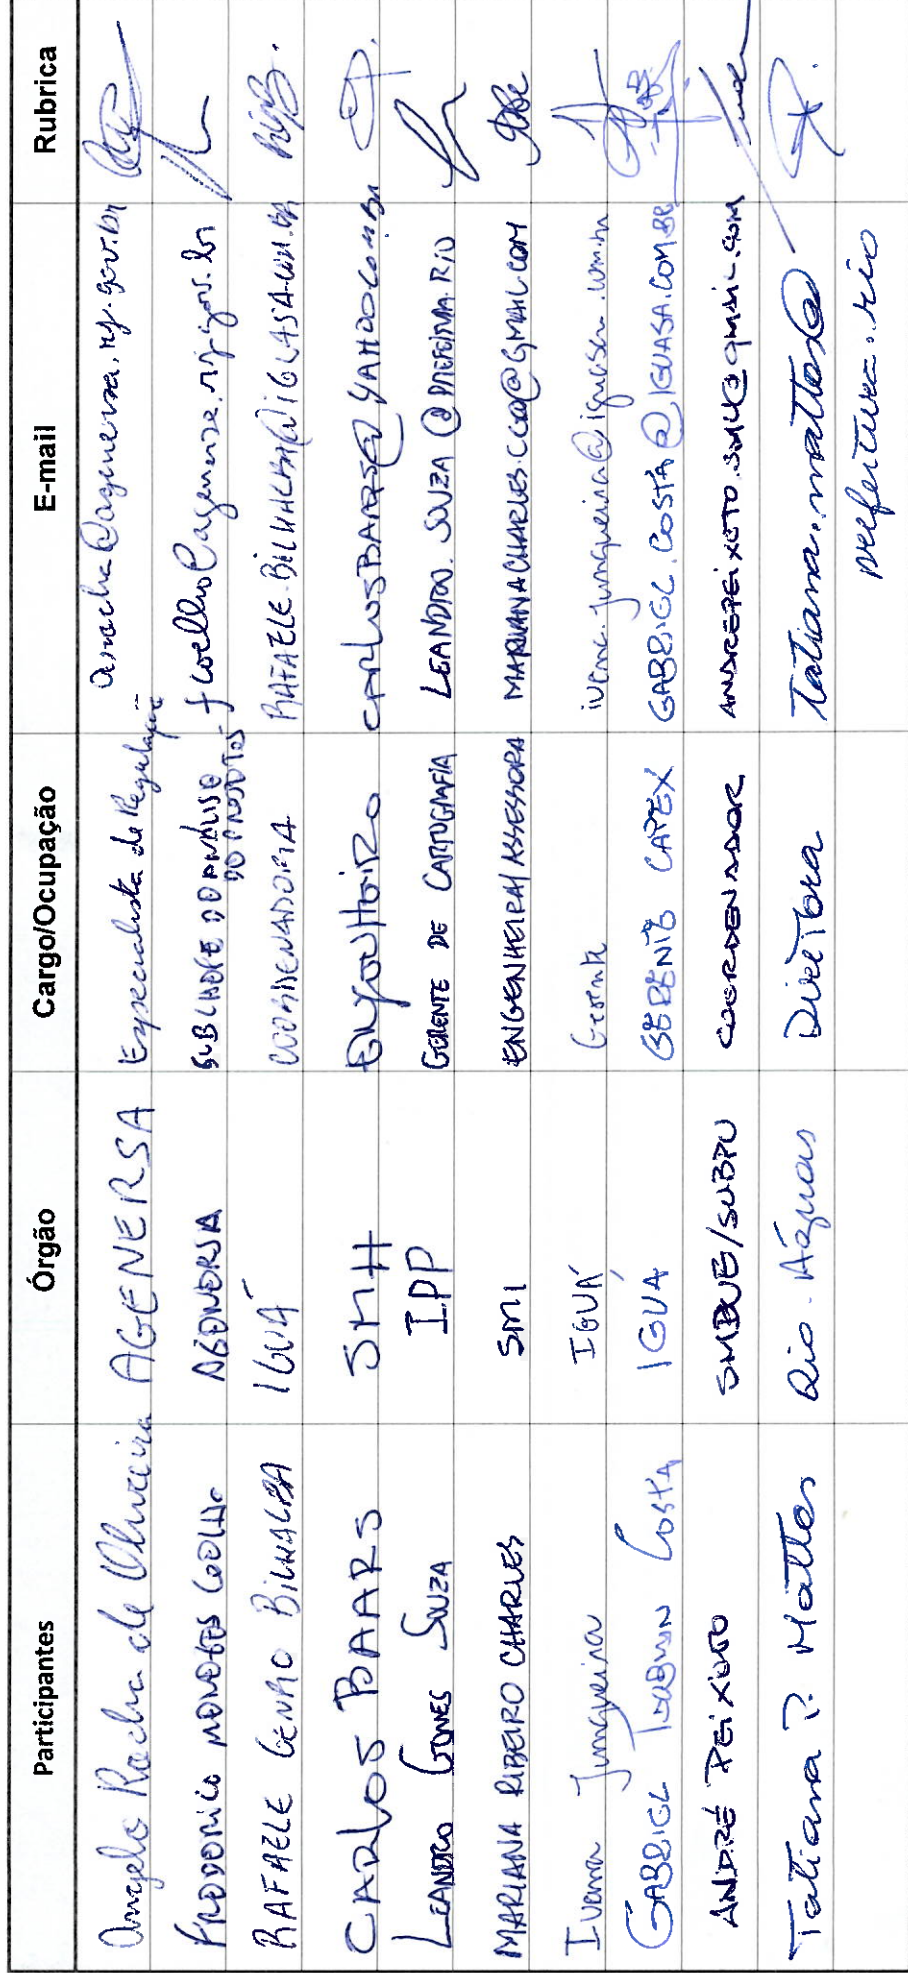 Participantes Órgão Cargo/Ocupação E-mail Rubrica
Angelo Rocha de Oliveira AGENERSA Especialista de Regulação arocha@agenersa.rj.gov.br
FREDERICO MENEZES COELHO AGENERSA SUBCHEFE DE ANÁLISE DE PROJETOS fcoelho@agenersa.rj.gov.br
RAFAELE GENRO BILHALBA IGUÁ COORDENADORIA RAFAELE.BILHALBA@IGUASA.COM.BR
CARLOS BAARS SMH ENGENHEIRO CARLOSBAARS@YAHOO.COM.BR
LEANDRO GOMES SOUZA IPP GERENTE DE CARTOGRAFIA LEANDRO.SOUZA@PREFEITURA.RIO
MARIANA RIBEIRO CHARLES SMI ENGENHEIRA/ASSESSORA
Ivena Junqueira IGUÁ Gerente ivena.junqueira@iguasa.com.br
GABRIGL COSTA IGUÁ CAPEX GABRIGL.COSTA@IGUASA.COM.BR
ANDRÉ PEIXOTO SMDUE/SUBPU COORDENADOR ANDREPEIXOTO.SMU@GMAIL.COM
Tatiana P. Mattos Rio-Águas Diretora Tatiana.mattos@
prefeitura.rio